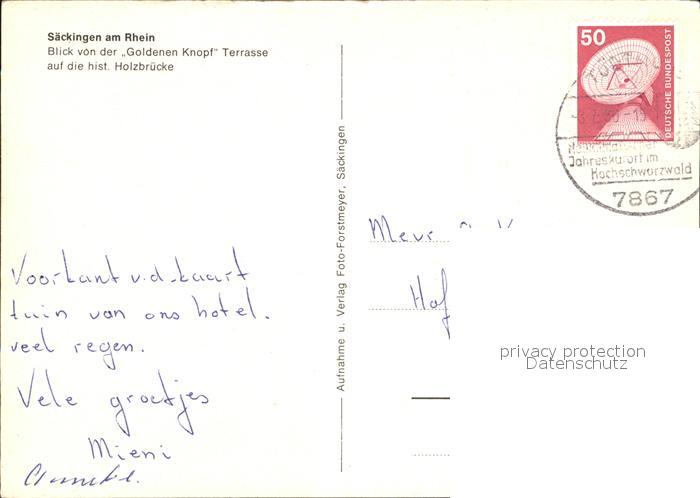 Säckingen am Rhein
Blick von der „Goldenen Knopf" Terrasse
auf die hist. Holzbrücke
50
DEUTSCHE BUNDESPOST
Jahreskurort im
Hochschwarzwald
7867
Aufnahme u. Verlag Foto-Forstmeyer, Säckingen
Mevr
Hof
Voorkant v.d. kaart
tuin van ons hotel.
veel regen.
Vele groetjes
Mieni
privacy protection
Datenschutz